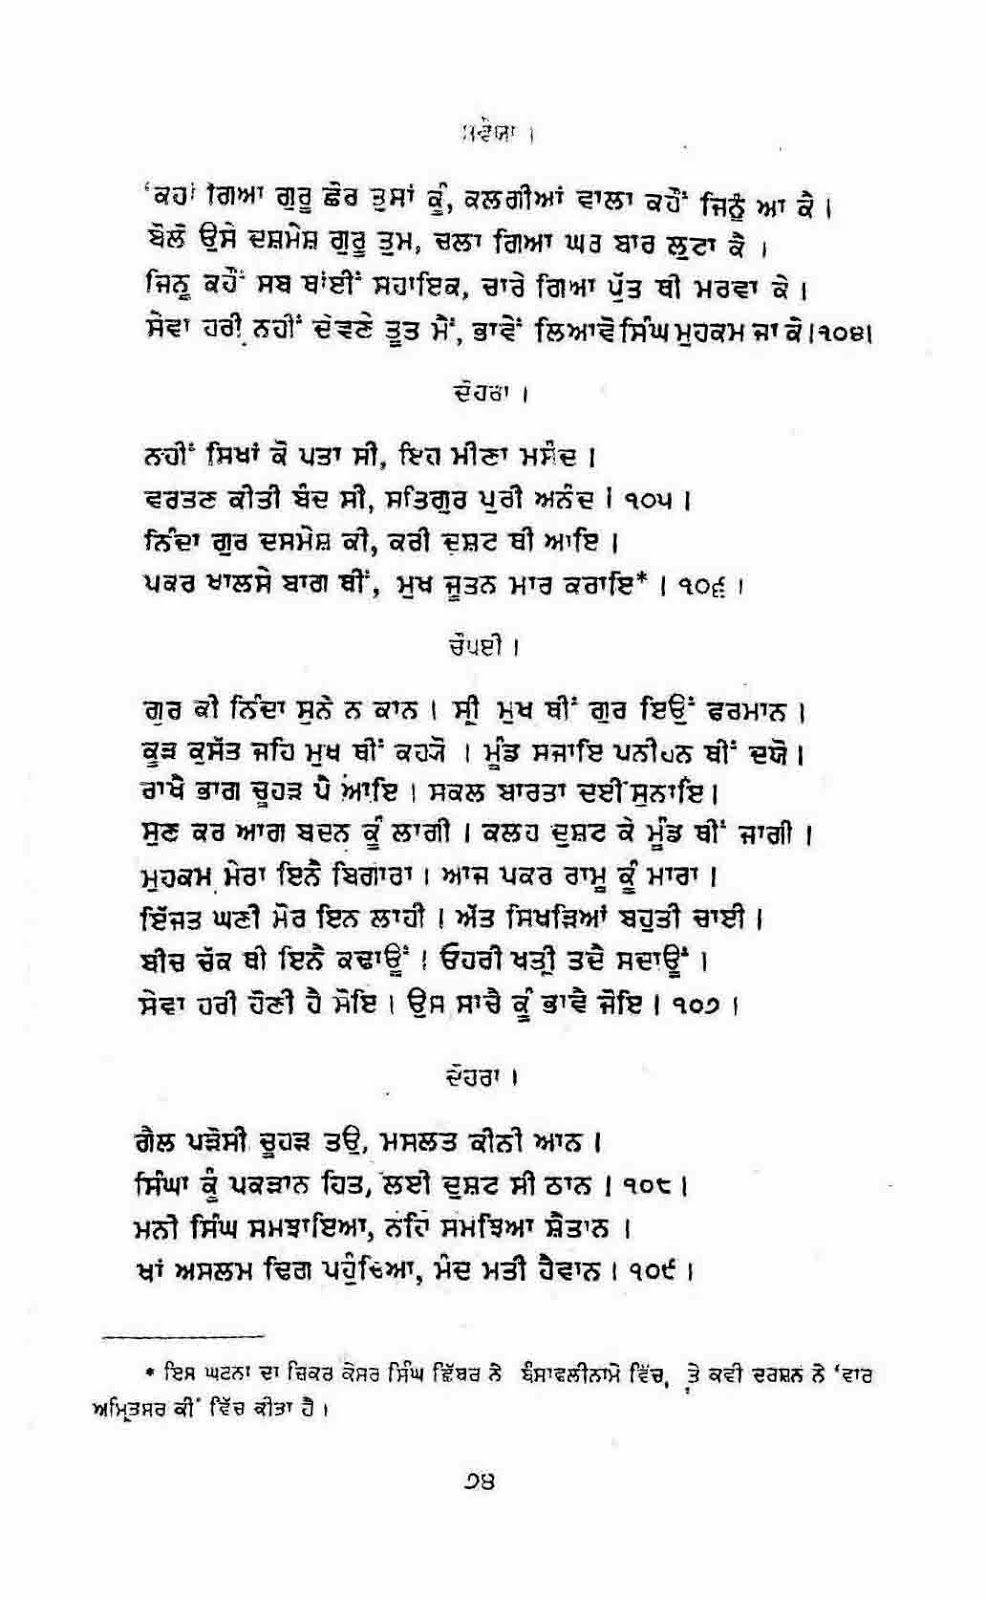 ਸਵੈਯਾ ।
‘ਕਹਾਂ ਗਿਆ ਗੁਰੂ ਛੋਰ ਤੁਸਾਂ ਕੂੰ, ਕਲਗੀਆਂ ਵਾਲਾ ਕਹੌਂ ਜਿਨੂੰ ਆ ਕੈ ।
ਬੋਲੋ ਉਸੇ ਦਸ਼ਮੇਸ਼ ਗੁਰੂ ਤੁਮ, ਚਲਾ ਗਿਆ ਘਰ ਬਾਰ ਲੁਟਾ ਕੈ ।
ਜਿਨੂ ਕਹੌਂ ਸਬ ਥਾਂਈਂ ਸਹਾਇਕ, ਚਾਰੇ ਗਿਆ ਪੁੱਤ ਥੀ ਮਰਵਾ ਕੇ ।
ਸੇਵਾ ਹਰੀ ਨਹੀਂ ਦੇਵਣੇ ਤੂਤ ਮੈਂ, ਭਾਵੇਂ ਲਿਆਵੋ ਸਿੰਘ ਮੁਹਕਮ ਜਾ ਕੇ।੧੦੪।
ਦੋਹਰਾ ।
ਨਹੀਂ ਸਿਖਾਂ ਕੋ ਪਤਾ ਸੀ, ਇਹ ਮੀਣਾ ਮਸੰਦ ।
ਵਰਤਣ ਕੀਤੀ ਬੰਦ ਸੀ, ਸਤਿਗੁਰ ਪੁਰੀ ਅਨੰਦ । ੧੦੫ ।
ਨਿੰਦਾ ਗੁਰ ਦਸਮੇਸ਼ ਕੀ, ਕਰੀ ਦੁਸ਼ਟ ਥੀ ਆਇ ।
ਪਕਰ ਖਾਲਸੇ ਬਾਗ ਥੀਂ, ਮੁਖ ਜੂਤਨ ਮਾਰ ਕਰਾਇ* । ੧੦੬ ।
ਚੌਪਈ ।
ਗੁਰ ਕੀ ਨਿੰਦਾ ਸੁਨੇ ਨ ਕਾਨ । ਸ੍ਰੀ ਮੁਖ ਥੀਂ ਗੁਰ ਇਉਂ ਫਰਮਾਨ ।
ਕੂੜ ਕੁਸੱਤ ਜਹਿ ਮੁਖ ਥੀਂ ਕਹਯੋ । ਮੂੰਡ ਸਜਾਇ ਪਨੀਹਨ ਥੀਂ ਦਯੋ ।
ਰਾਖੈ ਭਾਗ ਚੂਹੜ ਪੈ ਆਇ । ਸਕਲ ਬਾਰਤਾ ਦਈ ਸੁਨਾਇ ।
ਸੁਣ ਕਰ ਆਗ ਬਦਨ ਕੂੰ ਲਾਗੀ । ਕਲਹ ਦੁਸ਼ਟ ਕੇ ਮੂੰਡ ਥੀਂ ਜਾਗੀ ।
ਮੁਹਕਮ ਮੇਰਾ ਇਨੈ ਬਿਗਾਰਾ । ਆਜ ਪਕਰ ਰਾਮੂ ਕੂੰ ਮਾਰਾ ।
ਇੱਜਤ ਘਣੀ ਮੋਰ ਇਨ ਲਾਹੀ । ਅੱਤ ਸਿਖੜਿਆਂ ਬਹੁਤੀ ਚਾਈ ।
ਬੀਚ ਚੱਕ ਥੀ ਇਨੈ ਕਢਾਊਂ । ਓਹਰੀ ਖਤ੍ਰੀ ਤਦੈ ਸਦਾਊਂ ।
ਸੇਵਾ ਹਰੀ ਹੌਣੀ ਹੈ ਸੋਇ । ਉਸ ਸਾਚੈ ਕੂੰ ਭਾਵੈ ਜੋਇ । ੧੦੭ ।
ਦੋਹਰਾ ।
ਗੈਲ ਪੜੋਸੀ ਚੂਹੜ ਤਉ, ਮਸਲਤ ਕੀਨੀ ਆਨ ।
ਸਿੰਘਾ ਕੂੰ ਪਕੜਾਨ ਹਿਤ, ਲਈ ਦੁਸ਼ਟ ਸੀ ਠਾਨ । ੧੦੮ ।
ਮਨੀ ਸਿੰਘ ਸਮਝਾਇਆ, ਨਹਿ ਸਮਝਿਆ ਸ਼ੈਤਾਨ ।
ਖਾਂ ਅਸਲਮ ਢਿਗ ਪਹੁੰਚਿਆ, ਮੰਦ ਮਤੀ ਹੈਵਾਨ । ੧੦੯ ।
* ਇਸ ਘਟਨਾ ਦਾ ਜ਼ਿਕਰ ਕੇਸਰ ਸਿੰਘ ਛਿੱਬਰ ਨੇ ਬੰਸਾਵਲੀਨਾਮੇ ਵਿੱਚ, ਤੇ ਕਵੀ ਦਰਸ਼ਨ ਨੇ ‘ਵਾਰ
ਅਮ੍ਰਿਤਸਰ ਕੀ’ ਵਿੱਚ ਕੀਤਾ ਹੈ ।
੭੪